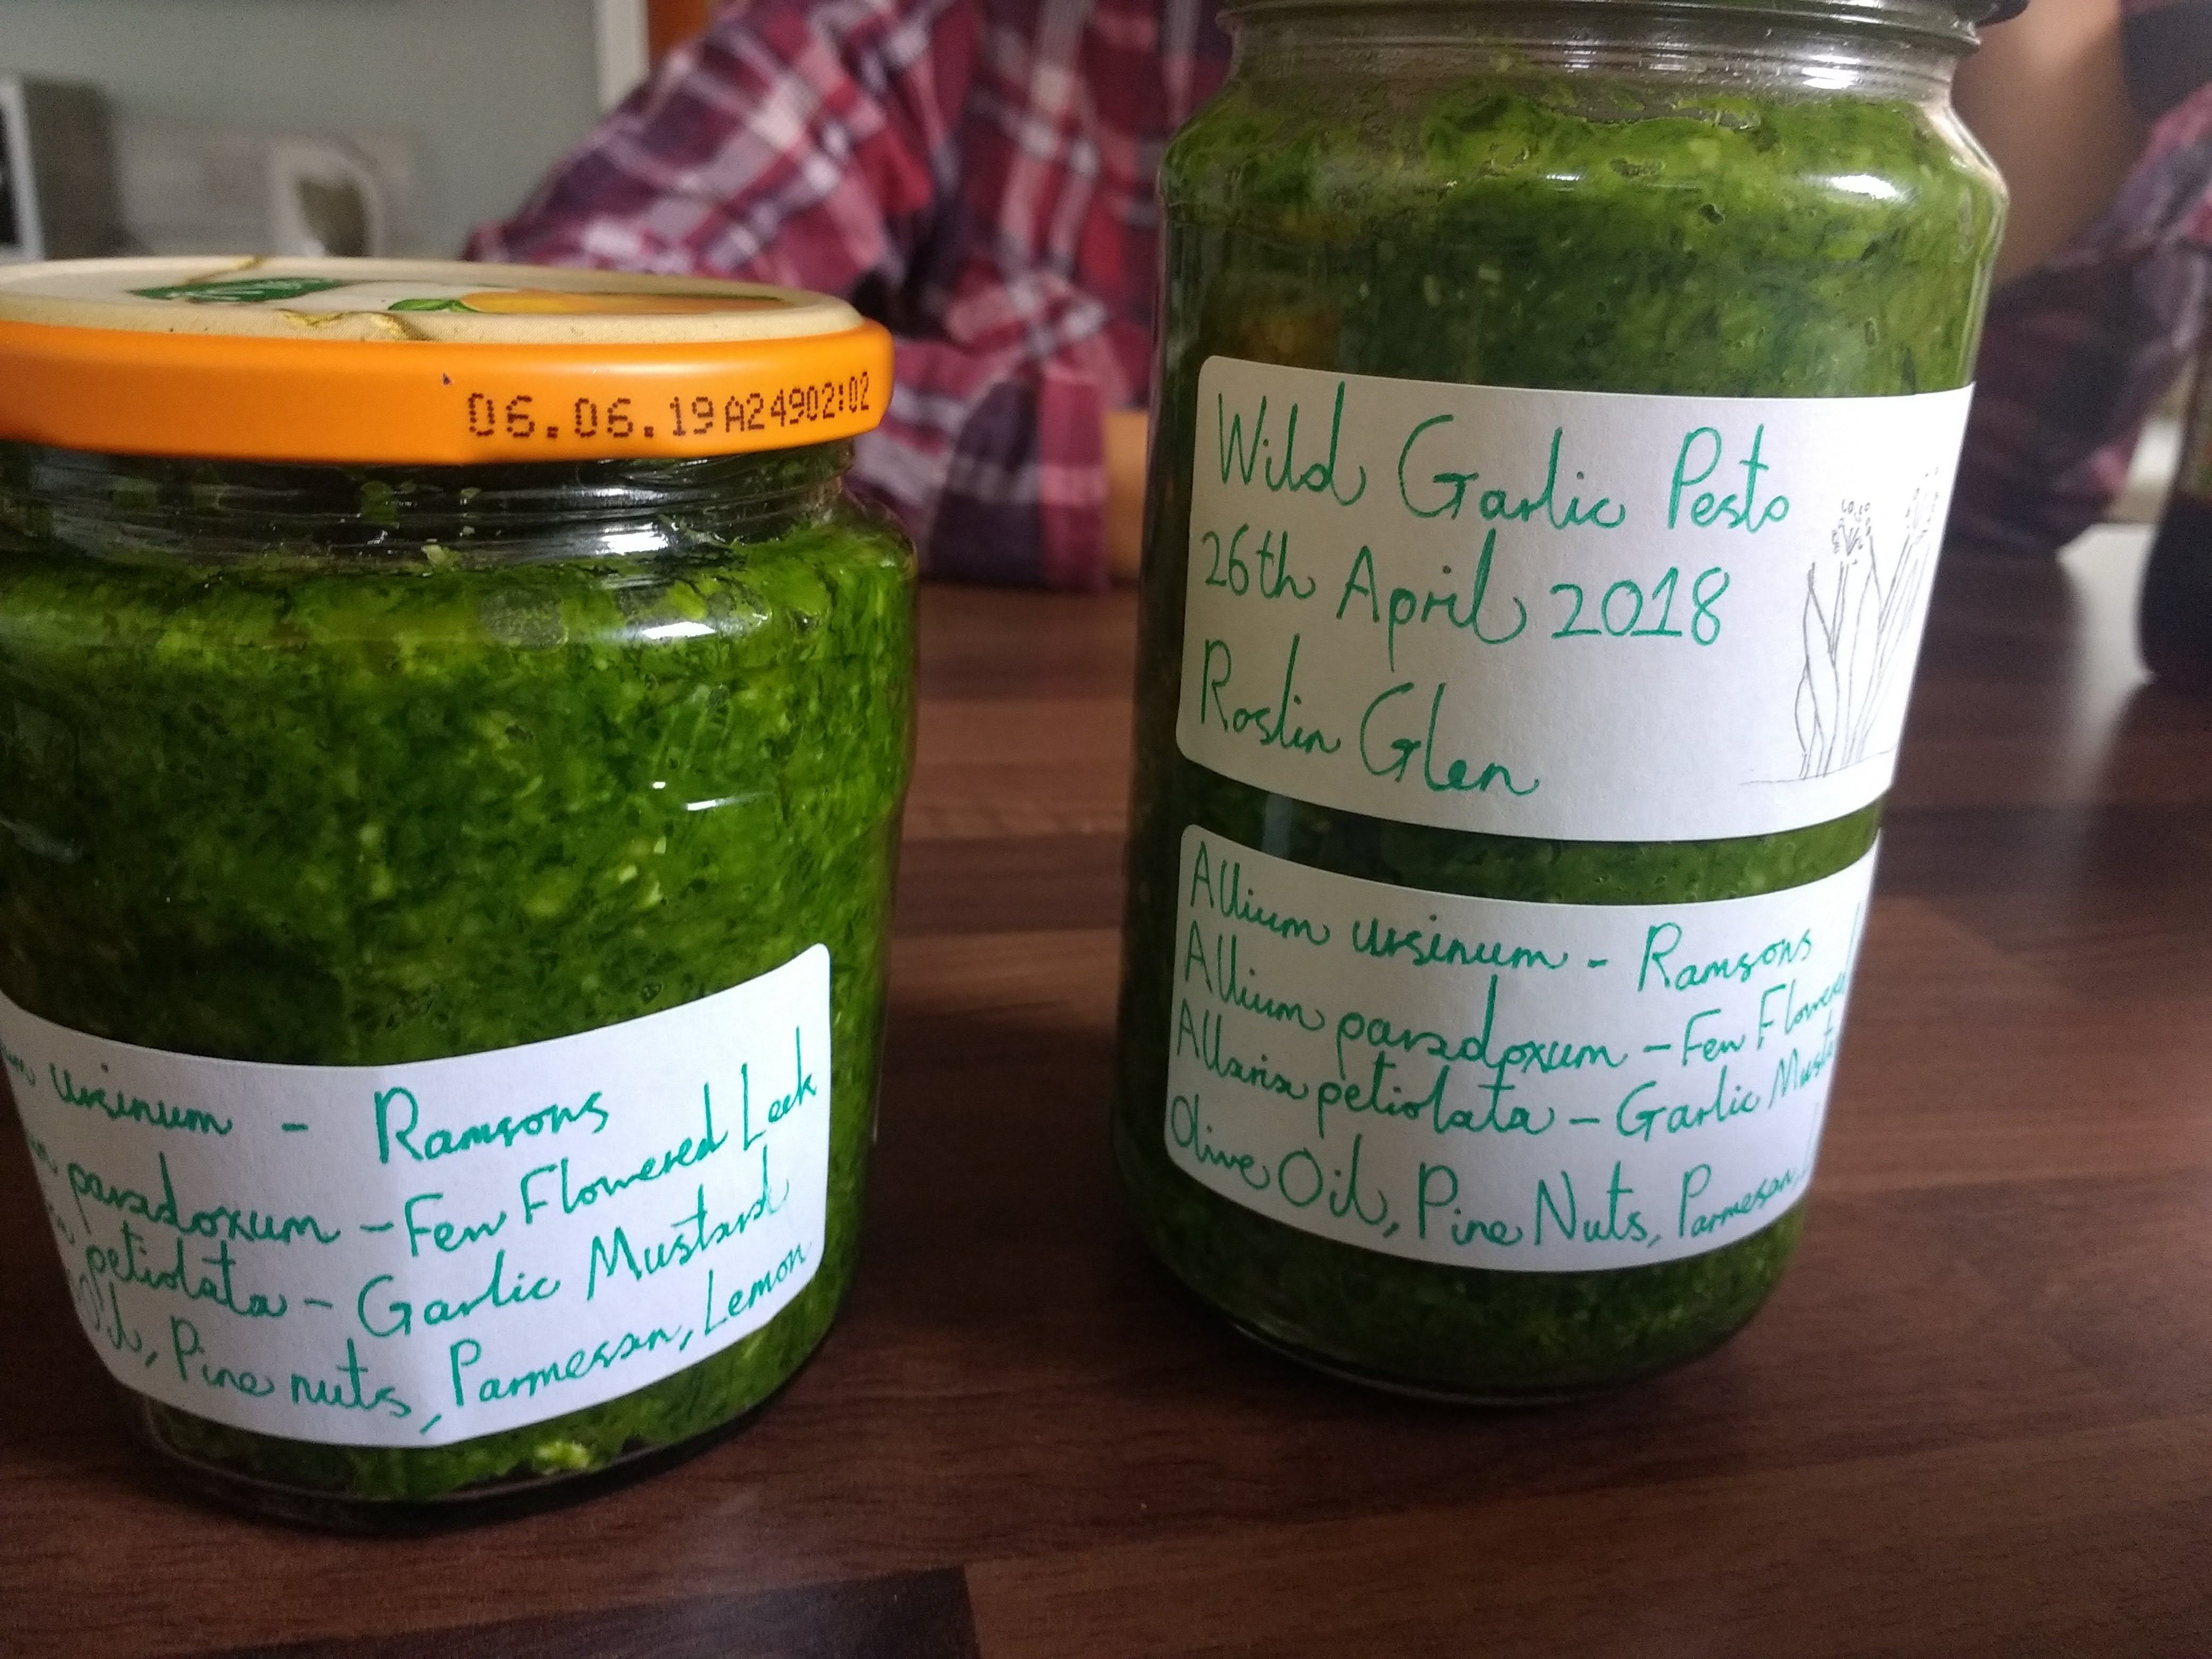 06.06.19A24902:02
ursinum - Ramsons
paradoxum - Few Flowered Leek
petiolata - Garlic Mustard
Oil, Pine nuts, Parmesan, Lemon
Wild Garlic Pesto
26th April 2018
Roslin Glen
Allium ursinum - Ramsons
Allium paradoxum - Few Flowered
Allaria petiolata - Garlic
Olive Oil, Pine Nuts, Parmesan,